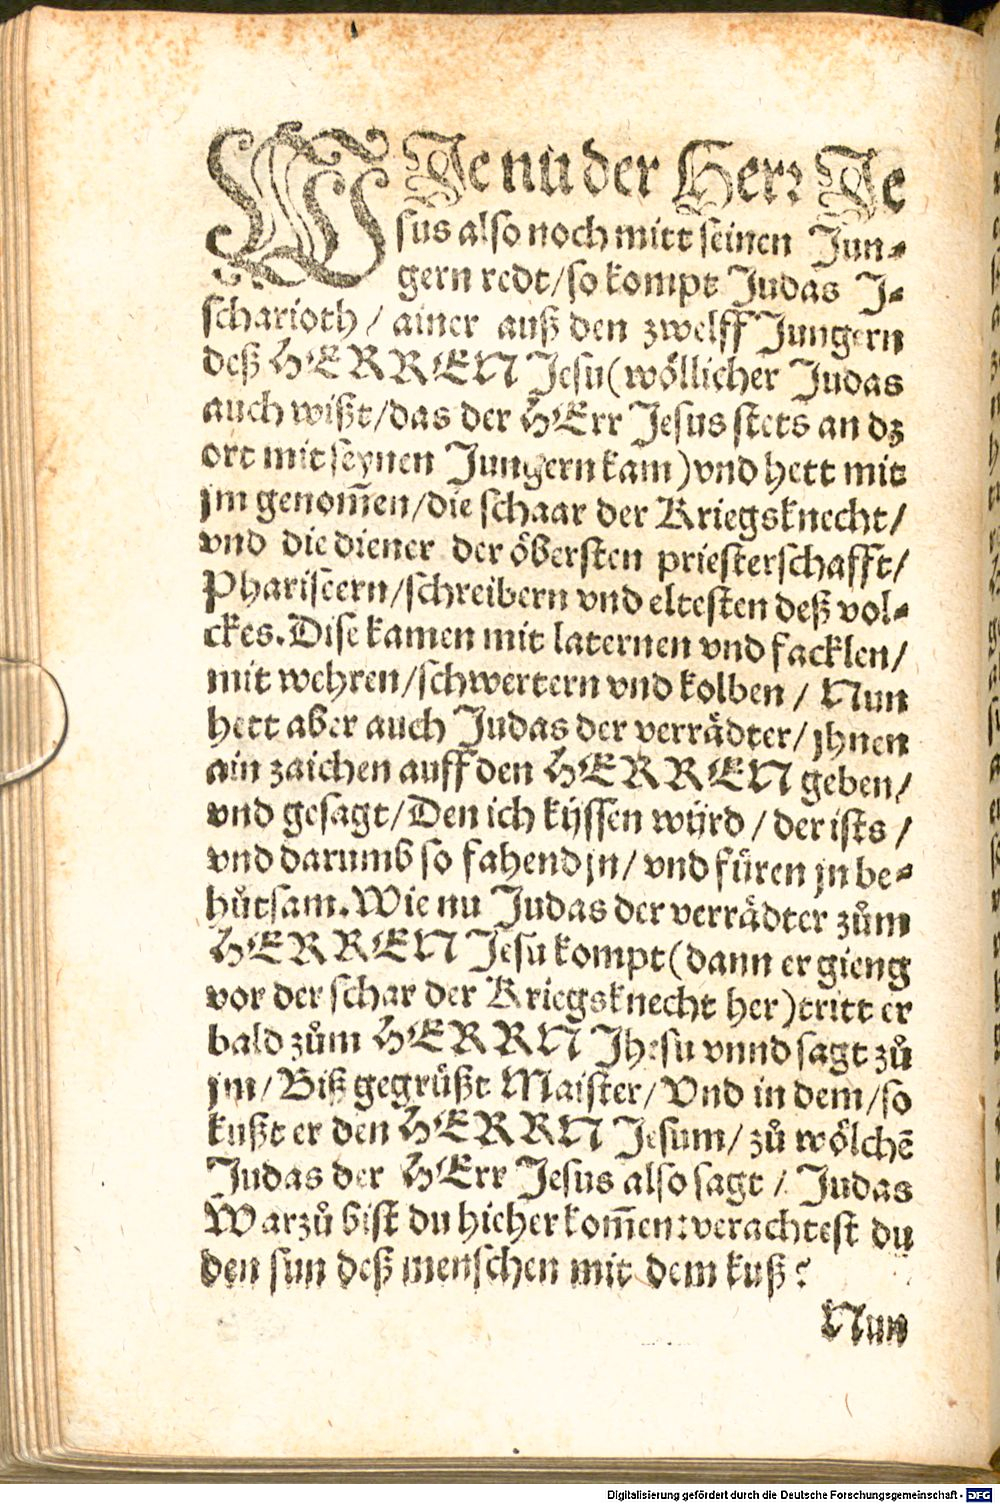 WJe nu der Herr Je
sus also noch mitt seinen Jun⸗
gern redt/so kompt Judas J⸗
scharioth / ainer auß den zwelff Jungern
deß HERREN Jesu(wöllicher Judas
auch wißt/das der HErr Jesus stets an dz
ort mit seynen Jungern kam)vnd hett mit
jm genom̄en/die schaar der Kriegsknecht/
vnd die diener der öbersten priesterschafft/
Phariseern/schreibern vnd eltesten deß vol⸗
ckes. Dise kamen mit laternen vnd facklen/
mit wehren/schwertern vnd kolben / Nun
hett aber auch Judas der verrädter/ jhnen
ain zaichen auff den HERREN geben/
vnd gesagt/Den ich kÿssen wÿrd / der ists /
vnd darumb so fahend jn/ vnd füren jn be⸗
hůtsam. Wie nu Judas der verrädter zům
HERREN Jesu kompt(dann er gieng
vor der schar der Kriegsknecht her)tritt er
bald zům HERRN Jhesu vnnd sagt zů
jm/ Biß gegrüßt Maister/ Vnd in dem/so
kußt er den HERRN Jesum/ zů wölchē
Judas der HErr Jesus also sagt / Judas
Warzů bist du hieher kom̄en:verachtest du
den sun deß menschen mit dem kuß?
Nun
Digitalisierung gefördert durch die Deutsche Forschungsgemeinschaft - DFG